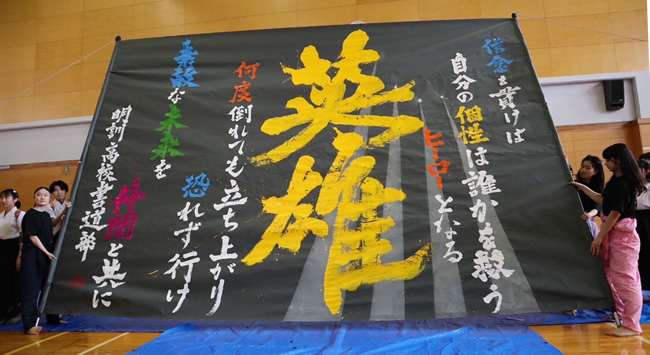 信念を貫けば
自分の個性は誰かを救う
ヒーローとなる
英雄
何度倒れても立ち上がり
恐れず行け
素敵な未来を
仲間と共に
明訓高校書道部